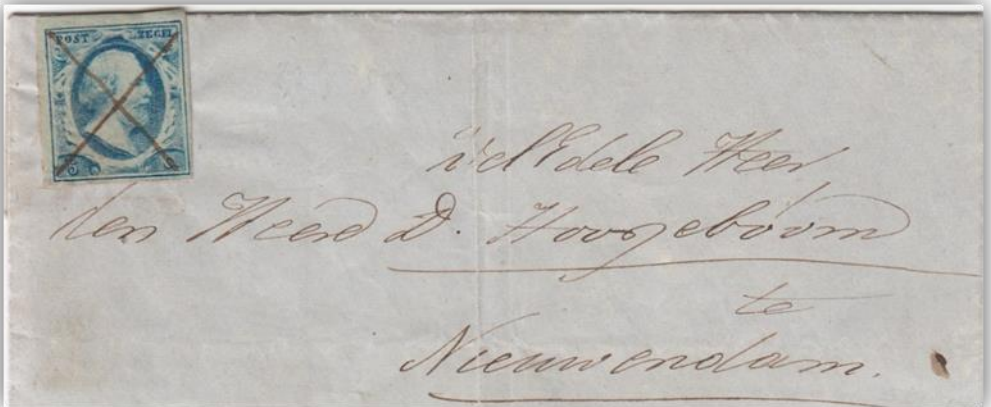 POST ZEGEL
WelEdele Heer
den Heere D. Hoogeboom
te
Nieuwendam.